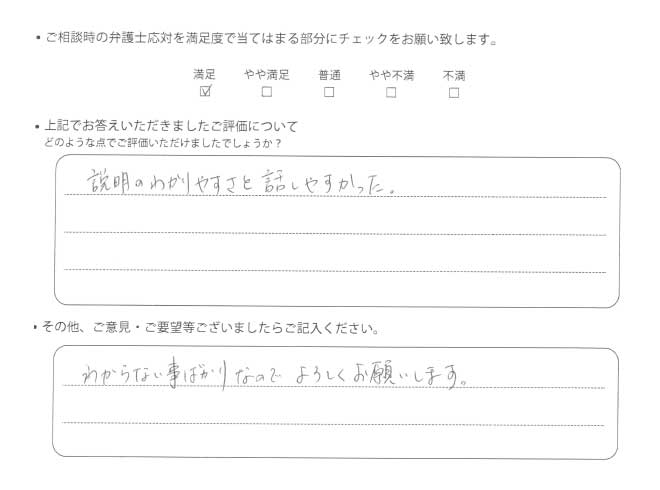 ・ご相談時の弁護士応対を満足度で当てはまる部分にチェックをお願い致します。
満足 やや満足 普通 やや不満 不満
☑ □ □ □ □
・上記でお答えいただきましたご評価について
どのような点でご評価いただけましたでしょうか？
説明のわかりやすさと話しやすかった。
・その他、ご意見・ご要望等ございましたらご記入ください。
わからない事ばかりなのでよろしくお願いします。